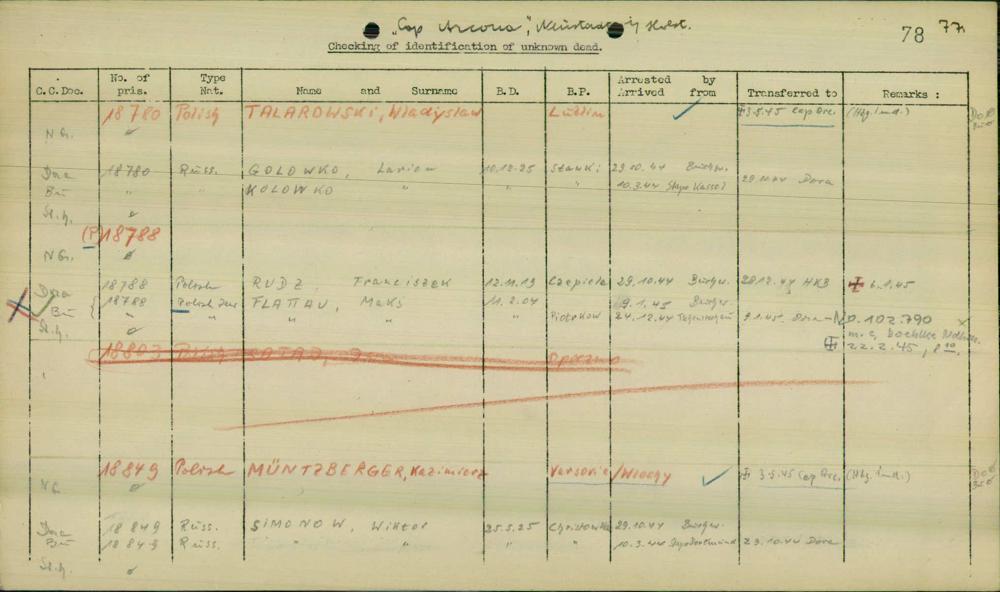 "Cap Arcona", Neustadt i/ Holst. 78 77
Checking of identification of unknown dead.
C.C.Doc. No. of pris. Type Nat. Name and Surname B.D. B.P. Arrested by Arrived from Transferred to Remarks :
18780 Polish TALAROWSKI, Wladyslaw Lublin ✓ 3.5.45 Cap Arc. (Hbg. Lund.)
N G.
Dora 18780 Russ. GOLOWKO, Larion 10.12.25 Stawki 29.10.44 Buchw.
Bu " " KOLOWKO " " " 10.3.44 Stapo Kassel 29.10.44 Dora
St.h.
(P) 18788
N G.
Dora 18788 Polish RUDZ, Franciszek 12.11.19 Czepiela 29.10.44 Buchw. 28.12.44 HKB 6.1.45
18788 Polish Jew FLATTAU, Maks 11.2.04 9.1.45 Buchw.
Bu " " " " Piotrkow 24.12.44 9.1.45 Dora - No. 102.790
St.h.
22.2.45, 8
18803 Polish
18849 Polish MÜNTZBERGER, Kazimierz Varsovie/Wlochy ✓ 3.5.45 Cap Arc. (Hbg. Lund.)
N G.
Dora 18849 Russ. SIMONOW, Wiktor 25.5.25 29.10.44 Buchw.
Bu 18849 Russ. " " " " 10.3.44 Stapo Dortmund 29.10.44 Dora
St.h.